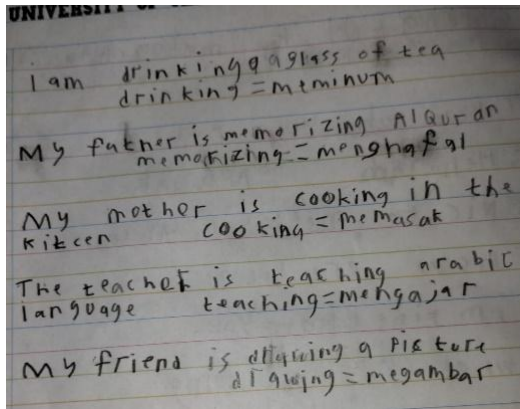 UNIVERSITY
I am drinking a glass of tea
drinking = meminum
My father is memorizing AlQuran
memorizing = menghafal
My mother is cooking in the
kitcen cooking = memasak
The teacher is teaching arabic
language teaching = mengajar
My friend is drawing a picture
drawing = megambar